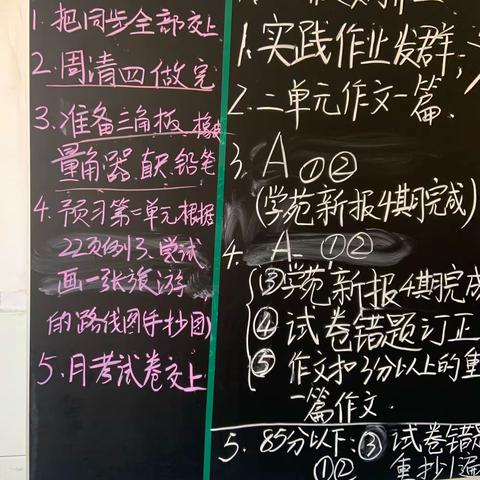 1.把同步全部交上
2.周清四做完
3.准备三角板、橡皮
量角器.直尺.铅笔
4.预习第一单元根据
22页例3、尝试
画一张旅游
的路线图(手抄团)
5.月考试卷交上
1.实践作业发群,
2.二单元作文一篇.
3. A ①②
(学苑新报4期完成)
4. A- ①②
③学苑新报4期完成
④试卷错题订正
⑤作文扣3分以上的重
一篇作文.
5. 85分以下:③试卷错题
①② 重抄1遍